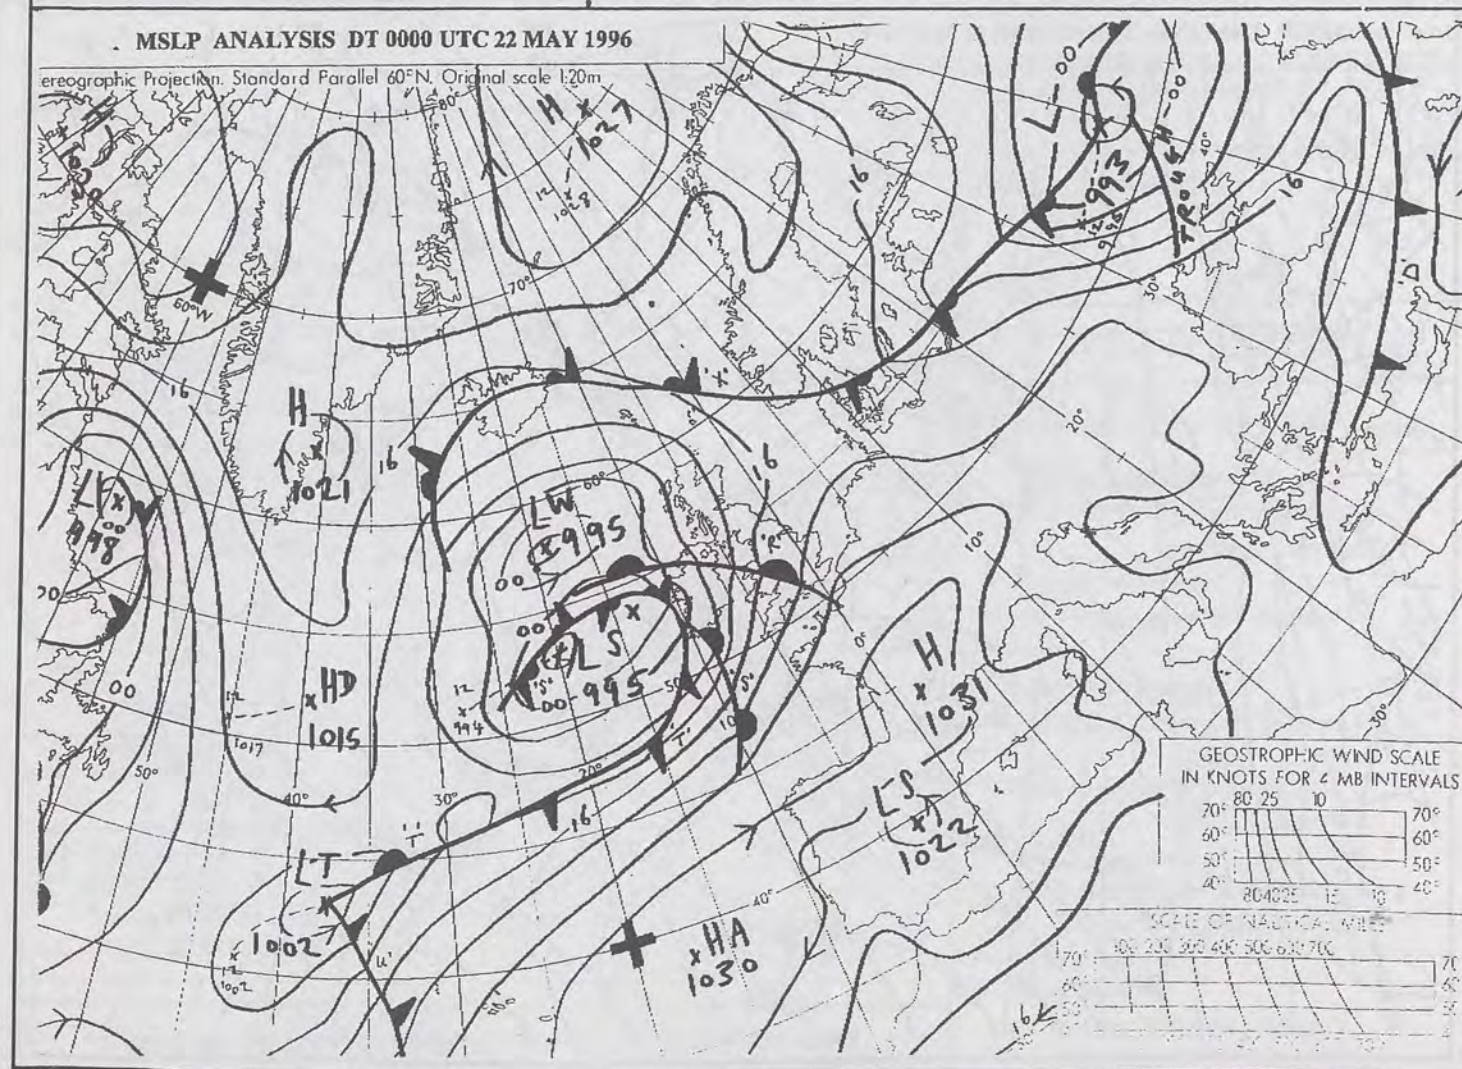 . MSLP ANALYSIS DT 0000 UTC 22 MAY 1996
ereographic Projection. Standard Parallel 60°N. Original scale 1:20m
80°
H
1027
12
1028
L-00
H-00
993
TROUGH
40°
16
16
60°W
70°
30°
'D'
16
H
1021
16
'X'
16
20°
L
00
998
LW
995
60°
00
'R'
10°
00
LS
995
00
'S'
50°
12
994
0°
H
1031
HD
1015
12
1017
00
50°
'S'
10°
'T'
20°
30°
40°
16
'T'
LT
1002
12
1002
'U'
LS
1022
40°
HA
1030
30°
GEOSTROPHIC WIND SCALE
IN KNOTS FOR 4 MB INTERVALS
80 25 10
70° 70°
60° 60°
50° 50°
40° 40°
80 40 25 15 10
SCALE OF NAUTICAL MILES
100 200 300 400 500 600 700
70° 70
60 60
50 50
16